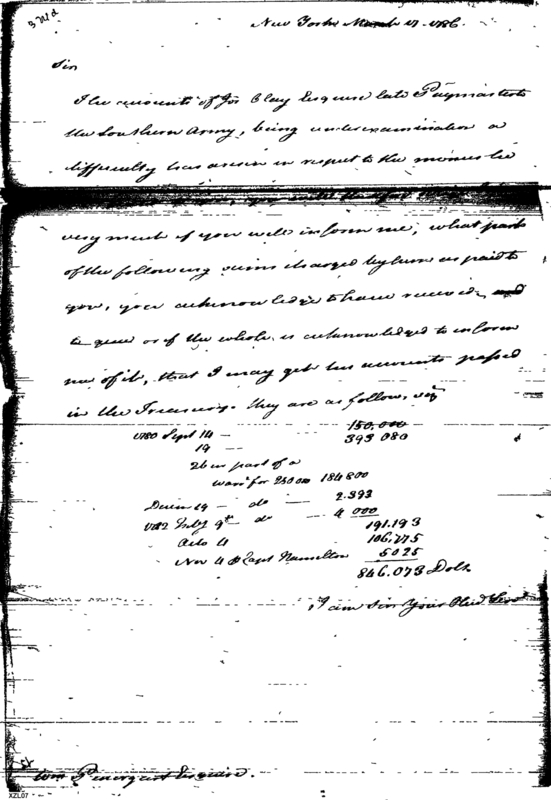 3 Md
New York March 17 1786
Sir
The accounts of Jos Clay Esquire late Paymaster to
the Southern Army, being under examination a
difficulty has arisen in respect to the monies he
very much if you will inform me, what part
of the following sums charged by him as paid to
you, you acknowledge to have received, and
or if the whole is acknowledged to inform
me of it, that I may get his accounts passed
in the Treasury. they are as follow, viz
1780 Sept 14 — 150,000
19 — 393 080
26 in part of a
warrt for 250 000 184 800
Decem 19 — do — 2.393
1782 Feby 9th — do — 4 000
191.193
Octo 4 106,775
Nov 4 Capt Hamilton 5025
846.073 Dolls
I am Sir Your Obed Servt
Wm Pendergast Esquire.
XZL07